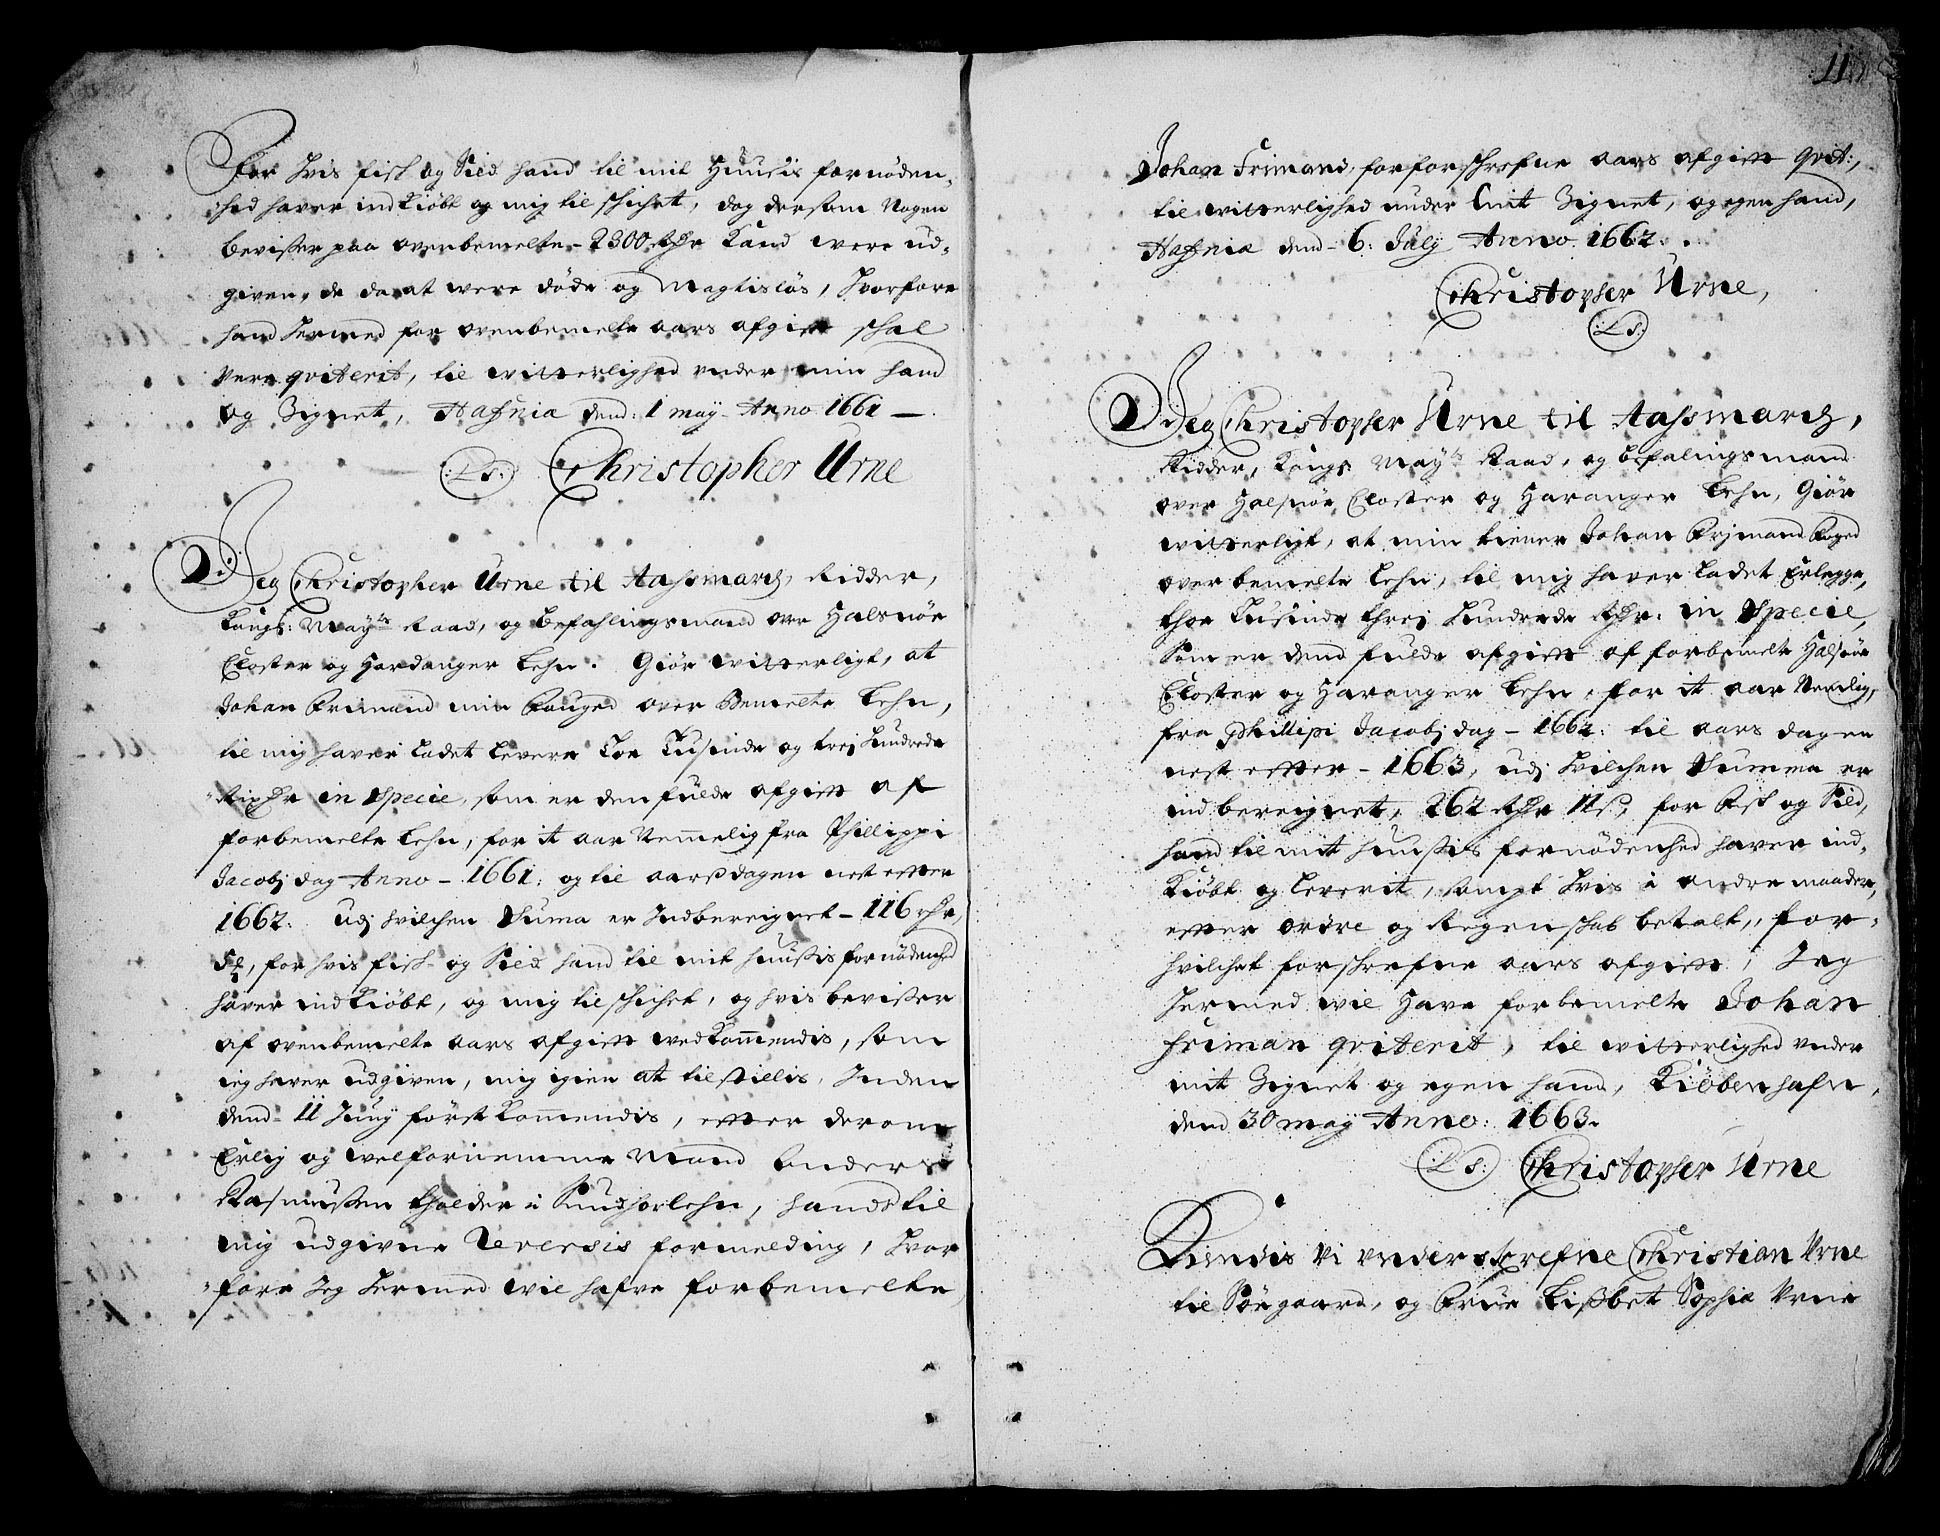 For hvis fisk og Sild hand til mit Huusis fornøden-
hed haver indkiøbt og mig tilschichet, dog dersom Nogen
bevisser paa ovenbemelte 2300 Rdr Kand were ud-
given, de da at were døde og Magtisløs, hvorfore
hand hermed for ovenbemelte aars afgifft schal
Vere qviterit, til witterlighed under min hand
og Signet, Hafniæ dend: 1 may Anno 1661 —
L S: Christopher Urne
Jeg Christopher Urne til Aassmarch, Ridder,
Kongl: Mayts Raad, og Befahlingsmand over Halsnöe
Closter og Hardanger Lehn. Giör witterligt, at
Johan Frimand min Fouged over Bemelte Lehn,
til mig haver ladet levere Toe Tusinde og trej hundrede
Rixdr in specie, som er den fulde afgifft af
forbemelte Lehn, for it aar Nemmelig fra Phillippi
Jacobj dag Anno – 1661: og til aarsdagen nest effter
1662: Udj hvilchen Suma er Indbereignet – 116 rdr,
for hvis fisk og Sild hand til mit huussis fornødenhed
haver indkiøbt, og mig tilschichet, og hvis bevisser
af ovenbemelte aars afgifft wedkommendis, som
ieg haver udgiven, mig igien at tilstillis, Inden
dend 11 Junij först kommendis, effter derom
Erlig og welfornemme Mand Anders
Rasmussen tholder i Sundhorlehn, hands til
mig udgivne Reversis formelding, hvor
fore Jeg hermed wil hafve forbemelte
11
Johan Frimand, for forschrefne aars afgifft qvit:,
til witterlighed under mit Signet, og egen hand,
Hafniæ dend 6: Julij Anno 1662:
Christopher Urne,
L S:
Jeg Christopher Urne til Aassmarch,
Ridder, Kongl Mayts Raad, og befalingsmand
over Halsnöe Closter og Haranger Lehn, Giör
witterligt, at min tiener Johan Frjmand Foged
over bemelte Lehn, til mig haver ladet Erlegge,
thoe Tusinde threj hundrede Rdr: in Specie,
Som er dend fulde afgifft af forbemelte Halsnöe
Closter og Haranger Lehn, for it aar Nemlig,
fra Phillipi Jacobj dag – 1662: til aars dagen
nest effter – 1663, udj hvilchen Summa er
indbereignet, 262 Rdr for fisk og Sild,
hand til mit huussis fornødenhed haver ind-
kiöbt og leverit, sampt hvis i andre maader,
effter ordre og Regenskab betalt, for-
hvilchet forschrefne aars afgifft, Jeg
hermed wil Have forbemelte Johan
Friman qviterit, til witterlighed under
mit Signet og egen hand, Kiöbenhafn,
dend 30 may Anno: 1663.
L S: Christopher Urne
Kiendis Vi underskrefne Christian Urne
til Söegaard, og Frue Lissbet Sophia Urne